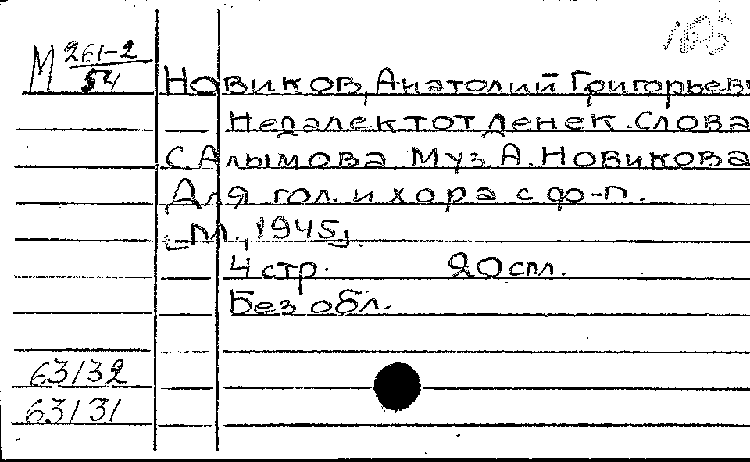 М 261-2
54
Новиков, Анатолий Григорьеви
Недалек тот денек. Слова
С. Алымова. Муз. А. Новикова.
Для гол. и хора с ф-п.
[М., 1945]
4 стр. 20 спл.
Без обл.
63132
63131